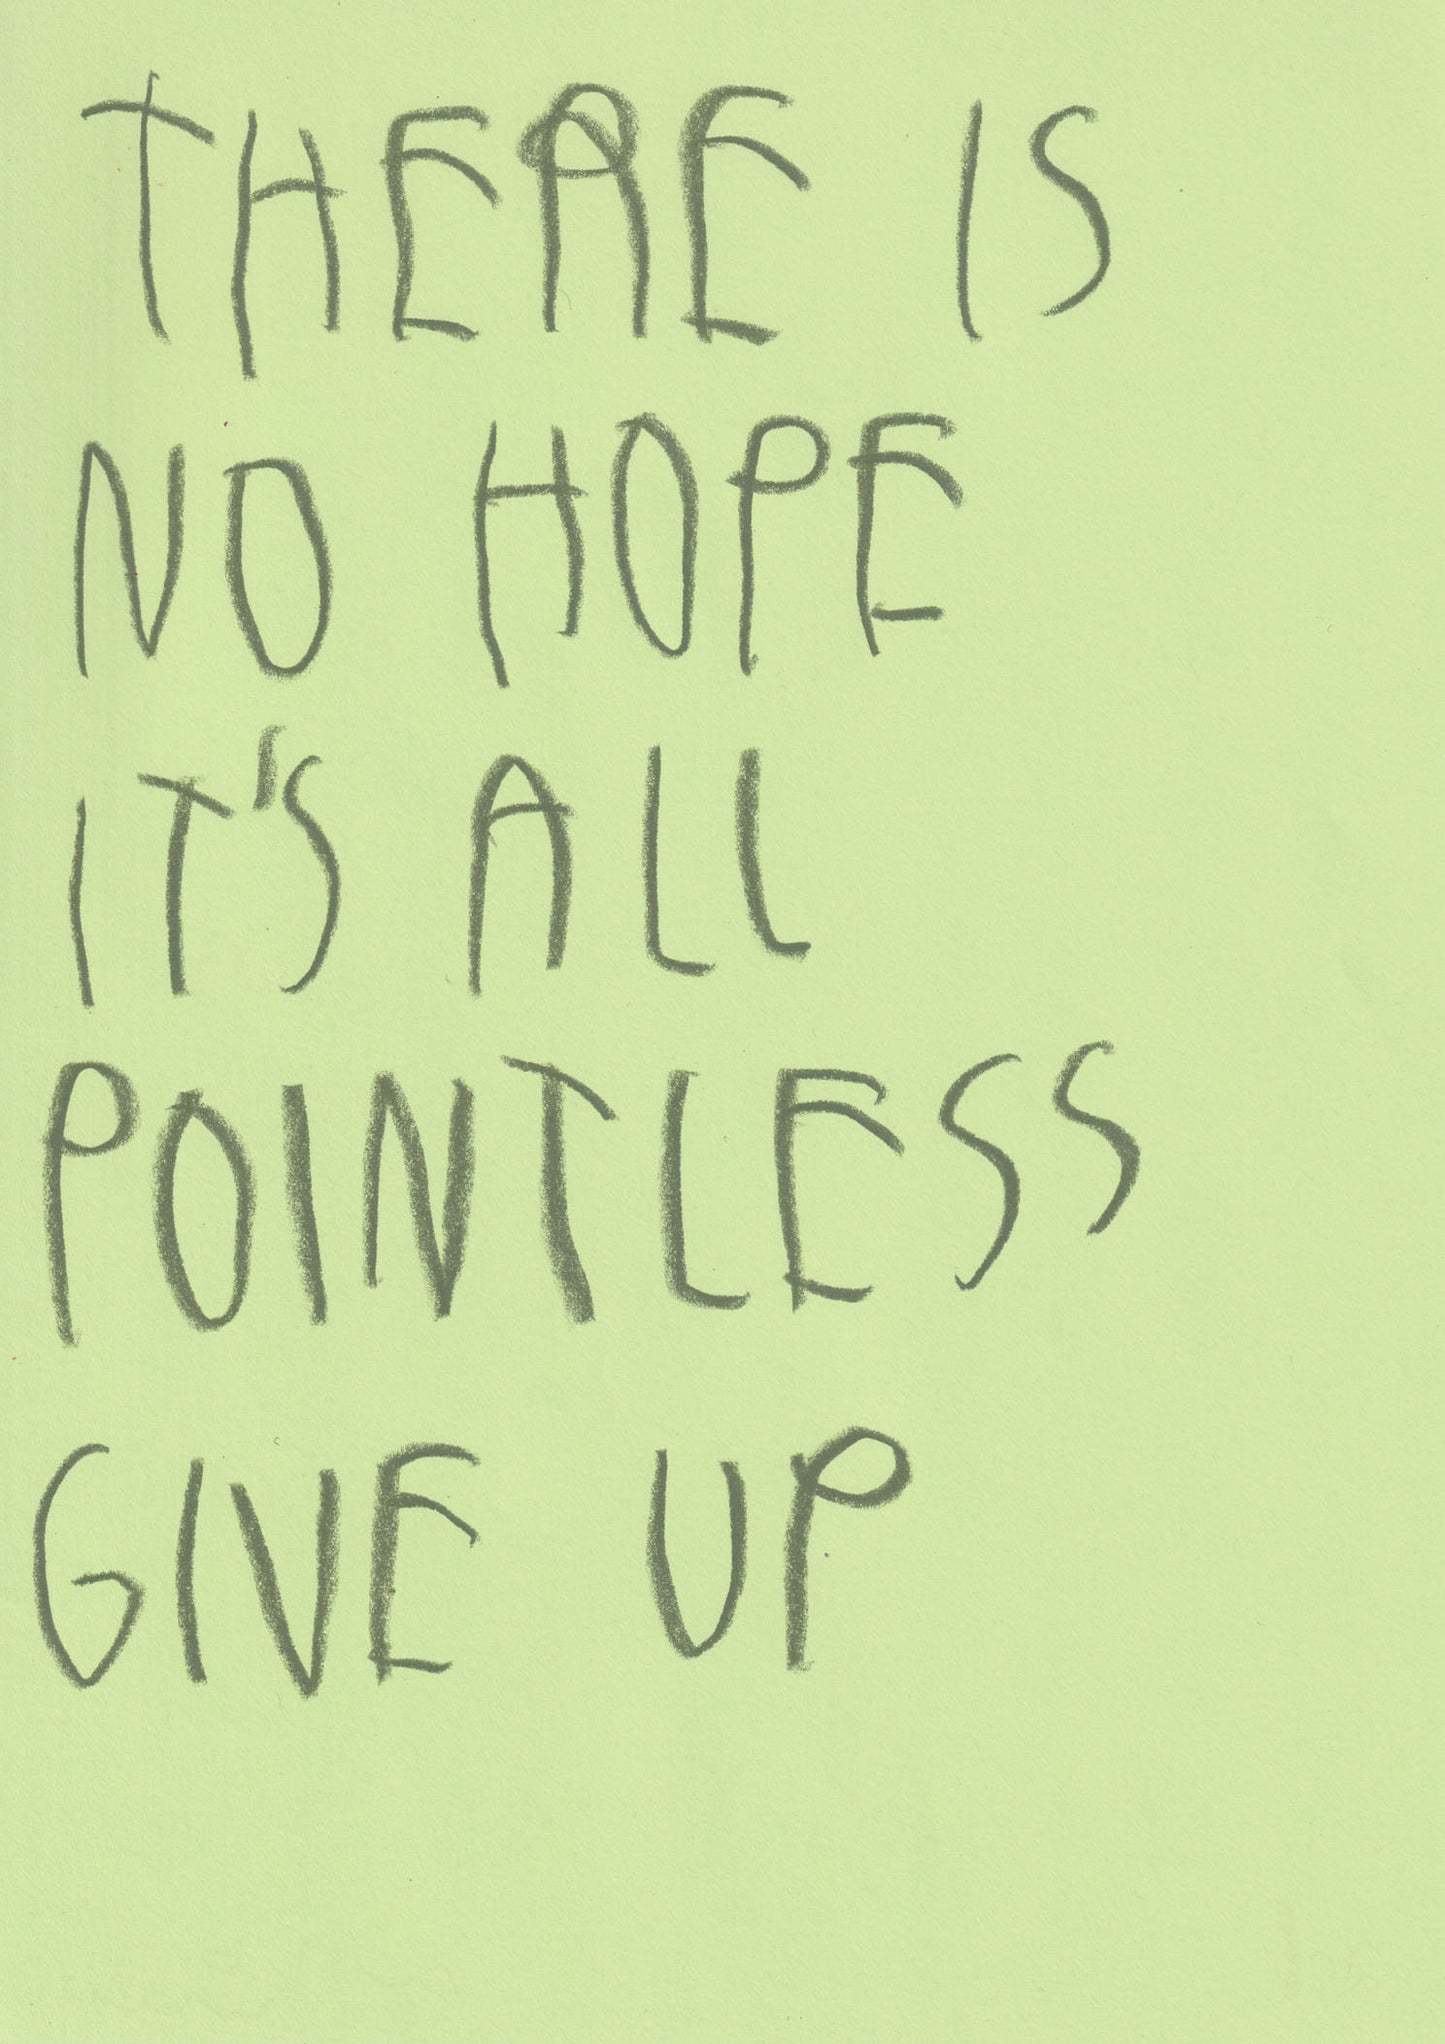 THERE IS
NO HOPE
IT'S ALL
POINTLESS
GIVE UP